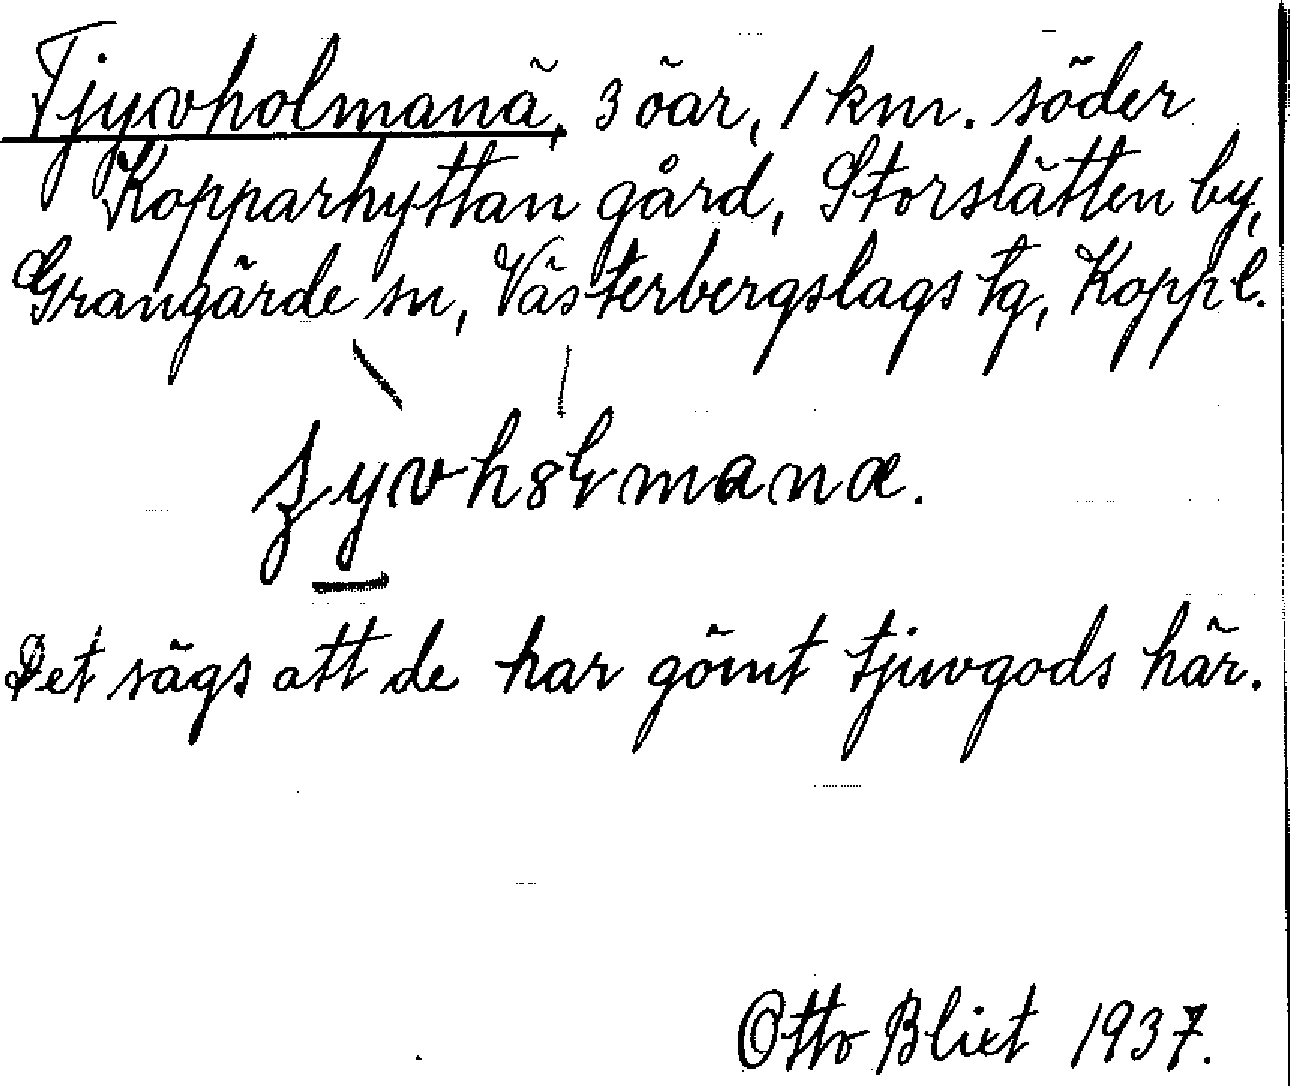 Tjyvholmanä, 3 öar, 1 km. söder
Kopparhyttan gård, Storslätten by,
Grangärde sn, Västerbergslags tg, Koppl.
Det sägs att de har gömt tjuvgods här.
Otto Blixt 1937.